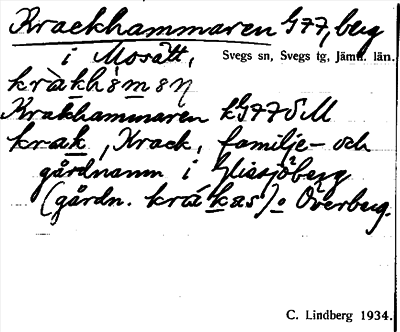 Krackhammaren G77, berg
i Mosätt, Svegs sn, Svegs tg, Jämtl. län.
kràkhamaṇ
Krakhammaren kG77SM
krak, Krack, familje- och
gårdnamn i Glissjöberg
(gårdn. krákas) o Överberg.
C. Lindberg 1934.